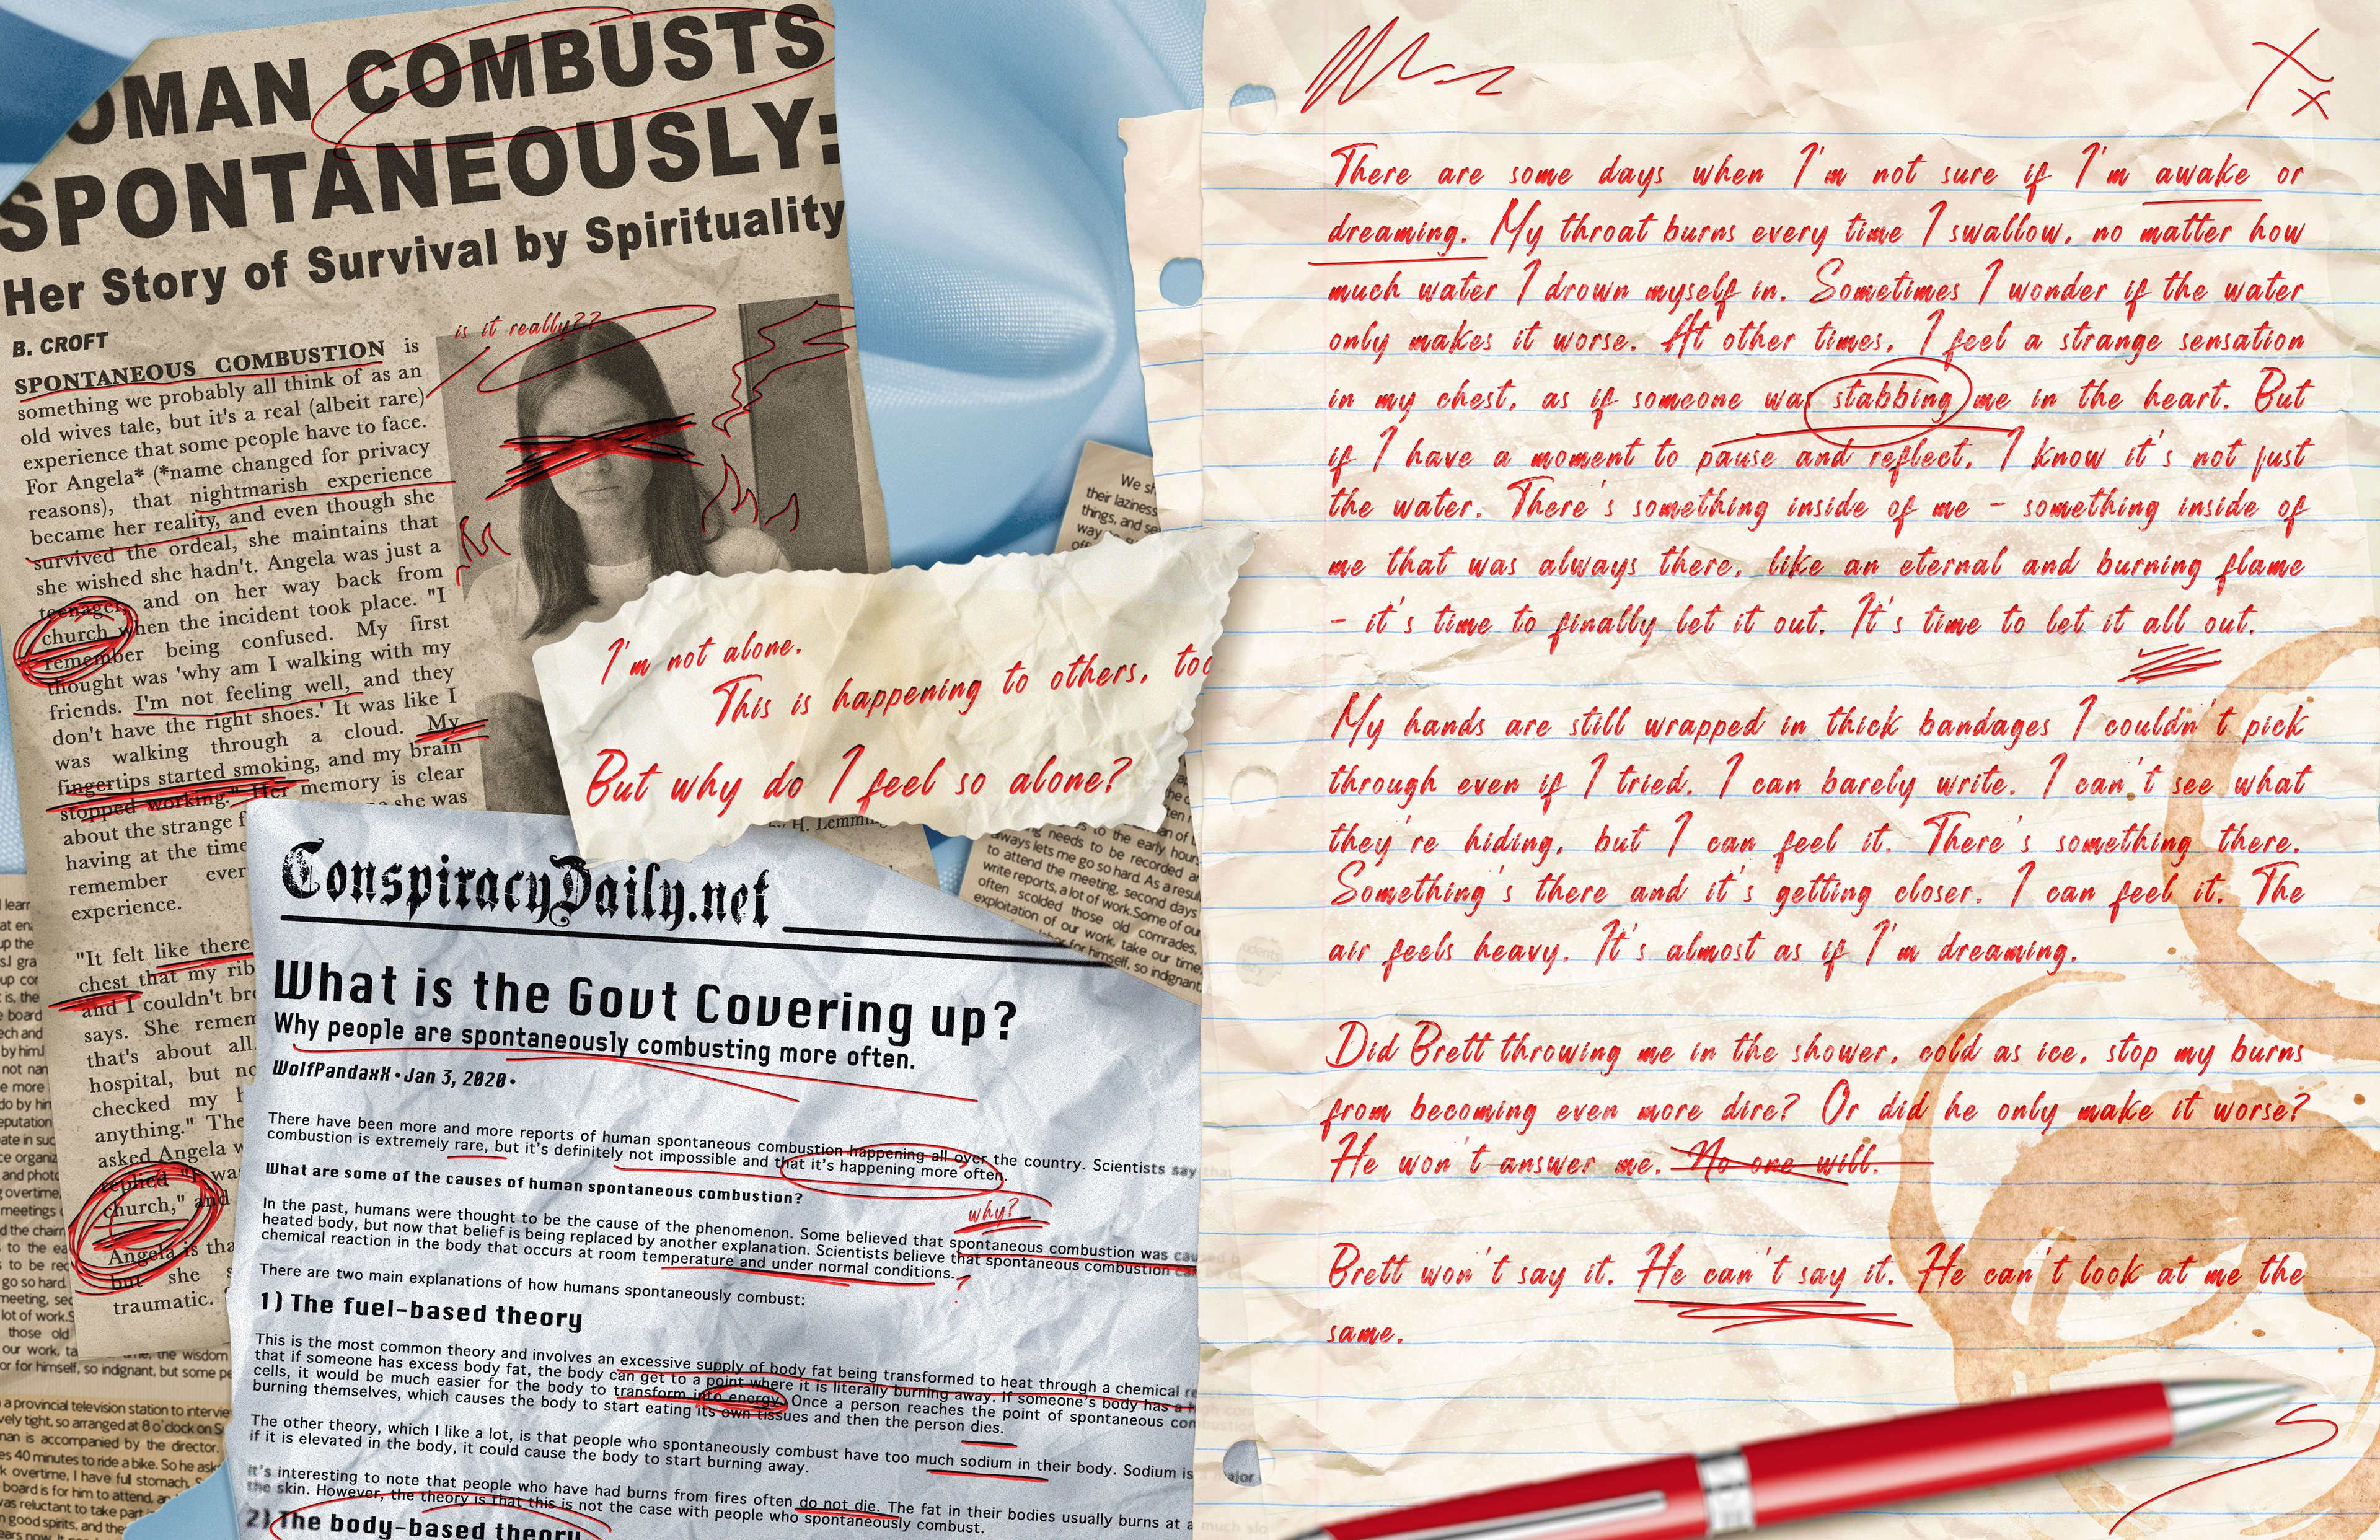 OMAN COMBUSTS
SPONTANEOUSLY:
Her Story of Survival by Spirituality
B. CROFT
SPONTANEOUS COMBUSTION is
something we probably all think of as an
old wives tale, but it's a real (albeit rare)
experience that some people have to face.
For Angela* (*name changed for privacy
reasons), that nightmarish experience
became her reality, and even though she
survived the ordeal, she maintains that
she wished she hadn't. Angela was just a
teenager, and on her way back from
church when the incident took place. "I
remember being confused. My first
thought was 'why am I walking with my
friends. I'm not feeling well, and they
don't have the right shoes.' It was like I
was walking through a cloud. My
fingertips started smoking, and my brain
stopped working." Her memory is clear
about the strange f
she was
having at the time
remember ever
experience.
"It felt like there
chest that my rib
and I couldn't bre
says. She remem
that's about all.
hospital, but no
checked my h
anything." The
asked Angela w
replied "I was
church," and
Angela is tha
but she s
traumatic.
is it really??
by H. Lemm
I'm not alone.
This is happening to others, too
But why do I feel so alone?
We sh
their laziness
things, and se
way
to the early hour
needs to be recorded a
always lets me go so hard. As a resul
to attend the meeting, second days
write reports, a lot of work.Some of our
often scolded those old comrades,
exploitation of our work, take our time,
for himself, so indignant,
ConspiracyDaily.net
What is the Govt Covering up?
Why people are spontaneously combusting more often.
WolfPandaxX • Jan 3, 2020 •
There have been more and more reports of human spontaneous combustion happening all over the country. Scientists say that
combustion is extremely rare, but it's definitely not impossible and that it's happening more often.
What are some of the causes of human spontaneous combustion?
why?
In the past, humans were thought to be the cause of the phenomenon. Some believed that spontaneous combustion was caused b
heated body, but now that belief is being replaced by another explanation. Scientists believe that spontaneous combustion
chemical reaction in the body that occurs at room temperature and under normal conditions.
?
There are two main explanations of how humans spontaneously combust:
1) The fuel-based theory
This is the most common theory and involves an excessive supply of body fat being transformed to heat through a chemical re
that if someone has excess body fat, the body can get to a point where it is literally burning away. If someone's body has a h
cells, it would be much easier for the body to transform into energy. Once a person reaches the point of spontaneous com
burning themselves, which causes the body to start eating its own tissues and then the person dies.
The other theory, which I like a lot, is that people who spontaneously combust have too much sodium in their body. Sodium is
if it is elevated in the body, it could cause the body to start burning away.
It's interesting to note that people who have had burns from fires often do not die. The fat in their bodies usually burns at a
the skin. However, the theory is that this is not the case with people who spontaneously combust.
2) The body-based theory
the wisdom
or for himself, so indignant, but some pe
a provincial television station to intervie
vely tight, so arranged at 8 o'clock on S
man is accompanied by the director.
es 40 minutes to ride a bike. So he ask
k overtime, I have full stomach.
board is for him to attend,
was reluctant to take part
n good spirits, and the
There are some days when I'm not sure if I'm awake or
dreaming. My throat burns every time I swallow, no matter how
much water I drown myself in. Sometimes I wonder if the water
only makes it worse. At other times, I feel a strange sensation
in my chest, as if someone was stabbing me in the heart. But
if I have a moment to pause and reflect, I know it's not just
the water. There's something inside of me - something inside of
me that was always there, like an eternal and burning flame
- it's time to finally let it out. It's time to let it all out.
My hands are still wrapped in thick bandages I couldn't pick
through even if I tried. I can barely write. I can't see what
they're hiding, but I can feel it. There's something there.
Something's there and it's getting closer. I can feel it. The
air feels heavy. It's almost as if I'm dreaming.
Did Brett throwing me in the shower, cold as ice, stop my burns
from becoming even more dire? Or did he only make it worse?
He won't answer me. No one will.
Brett won't say it. He can't say it. He can't look at me the
same.